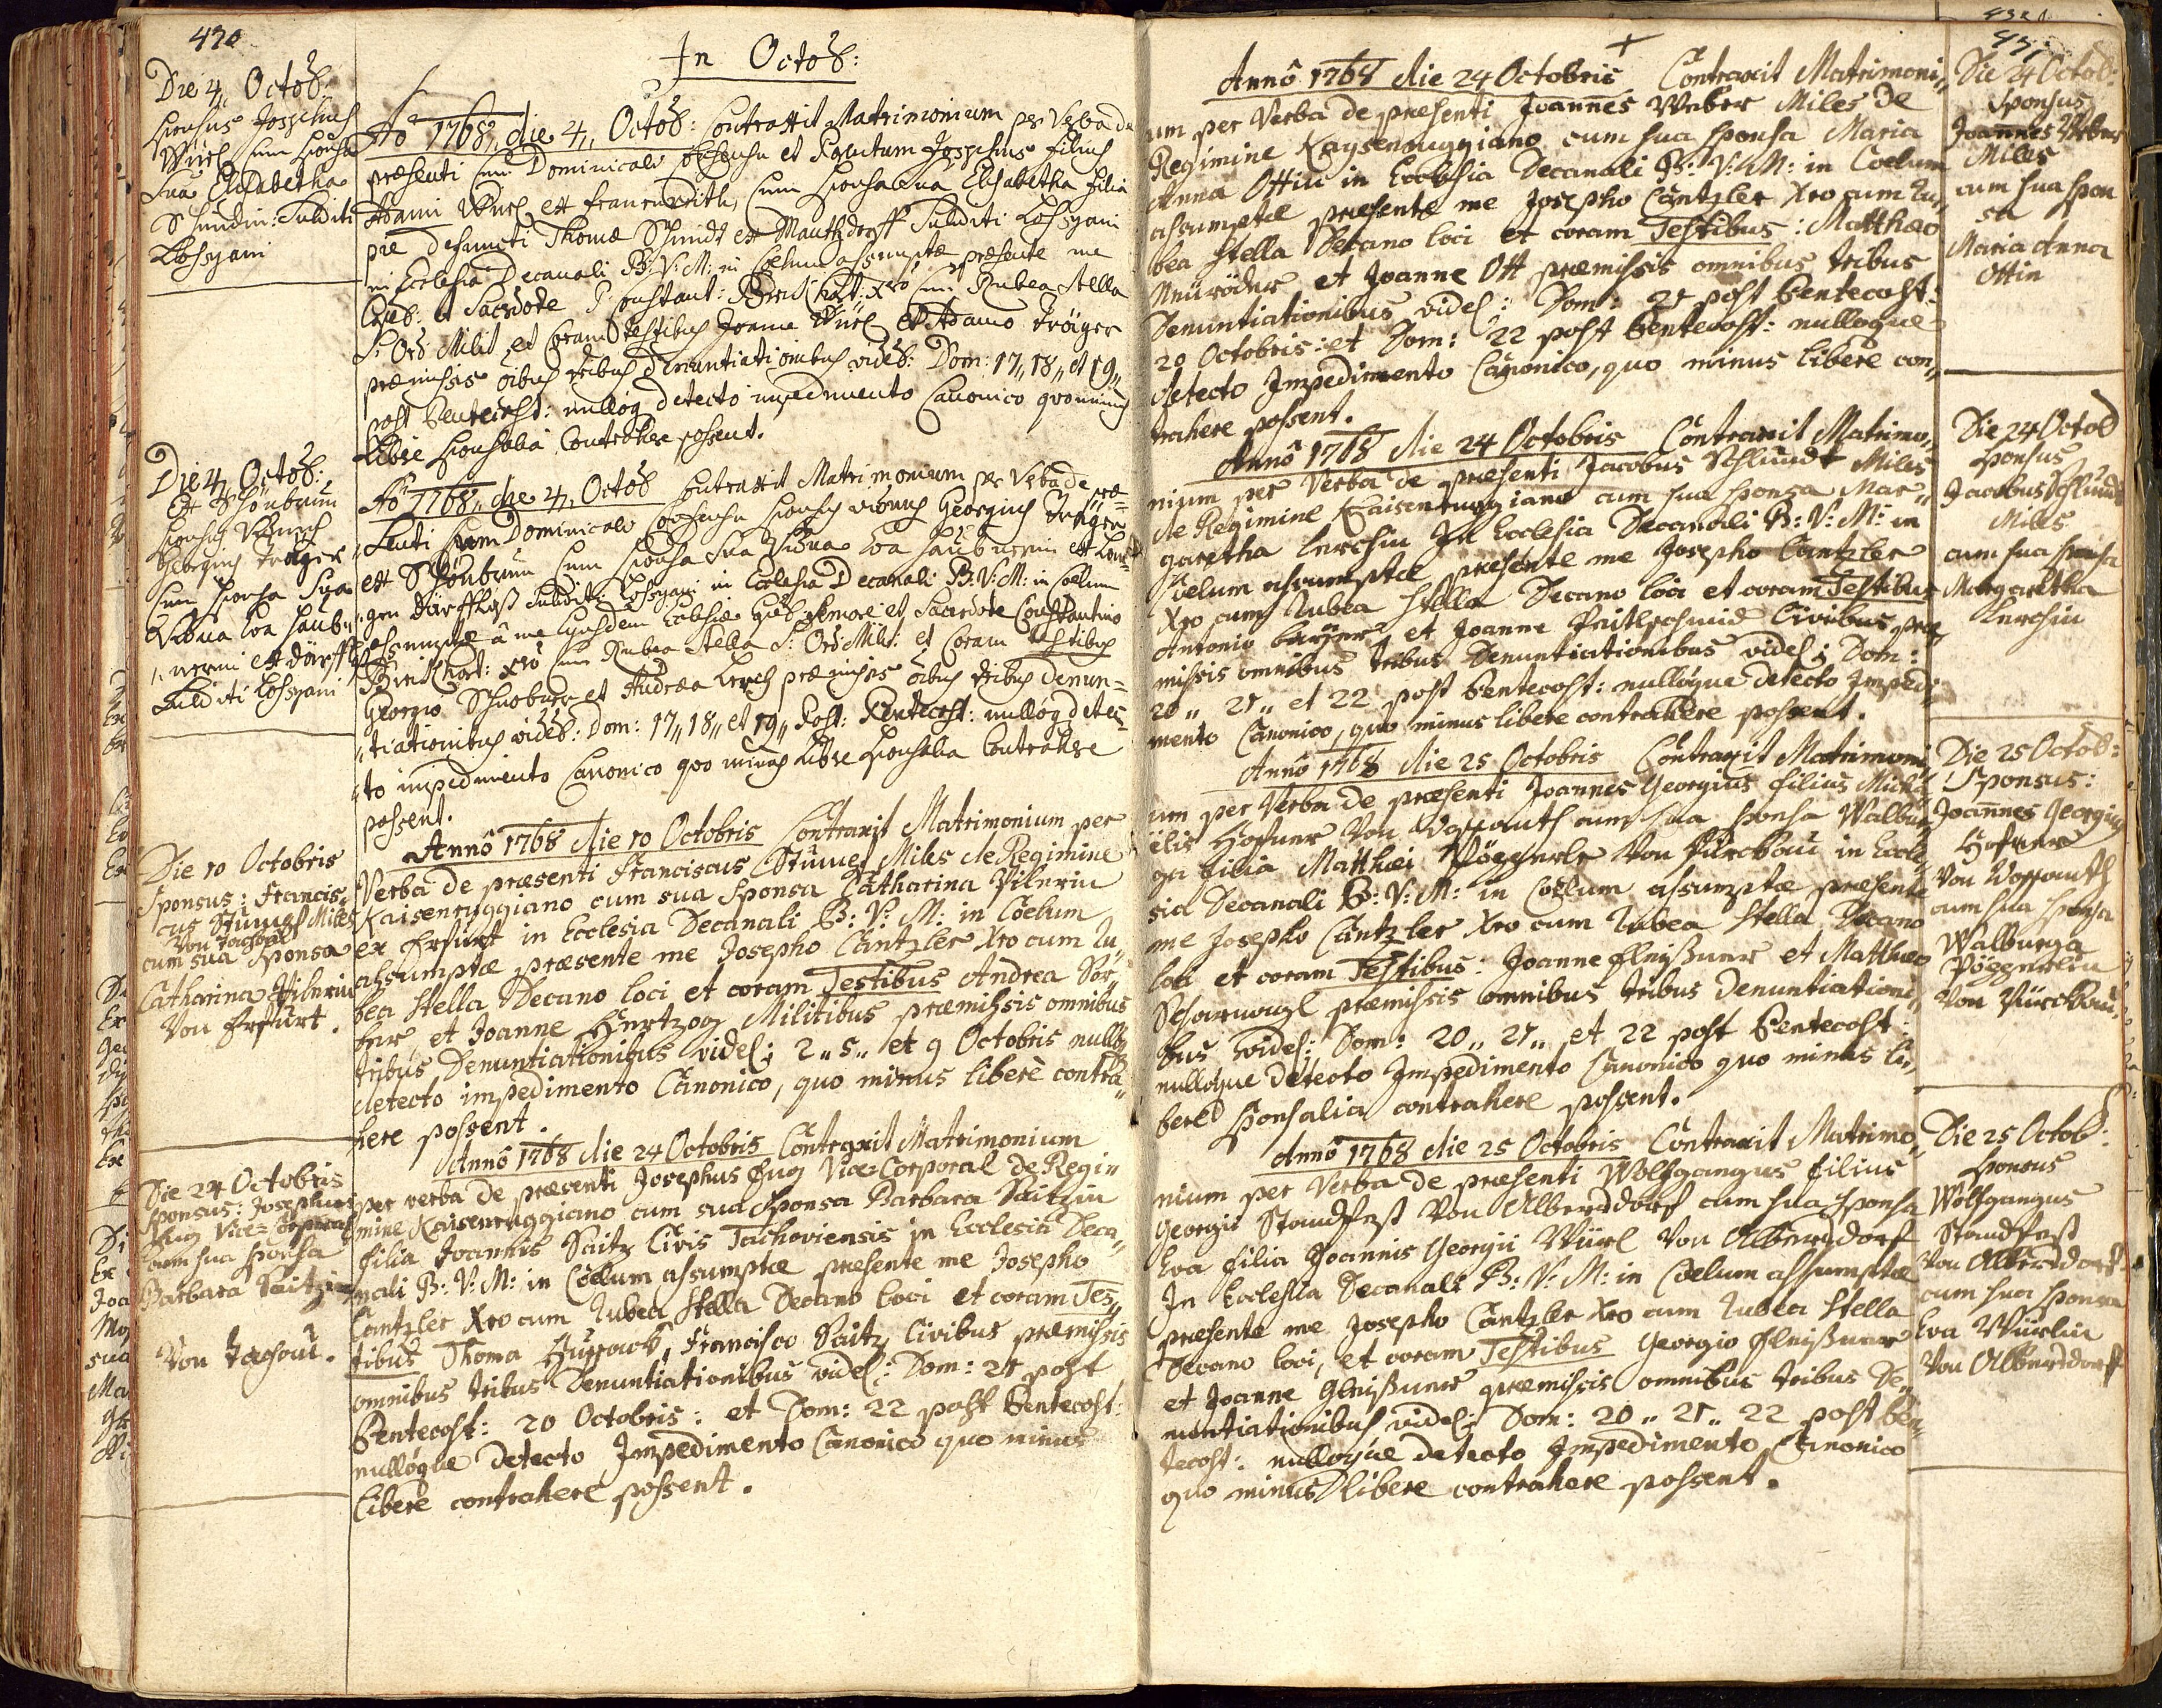 470
In Octob:
Die 4, Octob:
Sponsus Josephus
Würl cum Sponsa
Sua Elisabetha
Schmidin: Subditi
Lossgani
Aõ 1768, die 4, Octob: Contraxit Matrimonium per Verba de
præsenti cum Dominicali Josephus Filius
Adami Würl ex cum Sponsa sua Elisabetha filia
pie defuncti Thomæ Schmidt ex Mauthdorff Subditi Lossgani
in Ecclesia Decanali B: V: M: in Coelum assumptæ præsente me
et Sacerdote P: Constant: Xro cum Rubea Stella
S: Ord: Milit et Coram testibus Joanne Würl et Adamo Träger
præmissis oibus tribus denuntiationibus videl: Dom: 17, 18, et 19,
post Pentecost: nulloq detecto impedimento Canonico quominus
Libere Sponsalia Contrahere possent.
Die 4, Octob:
Ex Schönbrun
Sponsus Viduus
Georgius Träger
cum Sponsa Sua
Vidua Eva Haub-
nerin ex
Subditi Lossgani
Aõ 1768, die 4, Octob Contraxit Matrimonium per Verba de præ-
senti cum Dominicali Sponsus viduus Georgius Träger
ex Schönbrun cum Sponsa Sua Vidua Eva Haubnerin ex
Subditi Lossgani in Ecclesia Decanali B: V: M: in Coelum
assumptæ â me Ejusdem Ecclesiæ et Sacerdote Constantino
Xro cum Rubea Stella S: Ord: Milit: et Coram testibus
Georgio et Andrea Lerch præmissis oibus tribus denun-
tiationibus videl: Dom: 17, 18, et 19, Post: Pentecost: nulloq detec-
to impedimento Canonico quo minus Libere Sponsalia Contrahere
possent.
Die 10 Octobris
Sponsus: Francis-
cus Stümes Miles
cum sua Sponsa
Catharina Pilerin
Von Erfurt.
Annô 1768 die 10 Octobris Contraxit Matrimonium per
Verba de præsenti Franciscus Stümes Miles de Regimine
Kaisenruggiano cum sua Sponsa Catharina Pilerin
ex Erfurt in Ecclesia Decanali B: V: M: in Coelum
assumptæ præsente me Josepho Cantzler Xro cum Ru-
bea Stella Decano loci et coram Testibus Andrea
et Joanne Hertzog Militibus præmissis omnibus
tribus Denuntiationibus videl: 2, 5, et 9 Octobris nulloq
detecto impedimento Canonico, quo minus liberè contra-
here possent.
Die 24 Octobris
Sponsus: Josephus
Fug Vice-Corporal
cum sua Sponsa
Barbara Saitzin
Von Tachau.
Annô 1768 die 24 Octobris Contraxit Matrimonium
per verba de præsenti Josephus Fug Vice-Corporal de Regi-
mine Kaisenruggiano cum sua Sponsa Barbara Saitzin
filia Joannis Saitz Civis Tachoviensis in Ecclesia Deca-
nali B: V: M: in Coelum assumptæ præsente me Josepho
Cantzler Xro cum Rubea Stella Decano Loci et coram Tes-
tibus Thoma Francisco Saitz Civibus præmissis
omnibus tribus Denuntiationibus videl: Dom: 21 post
Pentecost: 20 Octobris: et Dom: 22 post Pentecost:
nulloque detecto Impedimento Canonico quo minus
libere contrahere possent.
471
Annô 1768 die 24 Octobris Contraxit Matrimoni-
um per Verba de præsenti Joannes Weber Miles de
Regimine Kaysenruggiano cum sua Sponsa Maria
Anna Ottin in Ecclesia Decanali B: V: M: in Coelum
assumptæ præsente me Josepho Cantzler Xro cum Ru-
bea Stella Decano loci et coram Testibus: Matthæo
Neuröder et Joanne Ott præmissis omnibus tribus
Denuntiationibus videl: Dom: 21 post Pentecost:
20 Octobris: et Dom: 22 post Pentecost: nulloque
detecto Impedimento Canonico, quo minus libere con-
trahere possent.
Die 24 Octob:
Sponsus
Joannes Weber
Miles
cum sua Spon
sa
Maria Anna
Ottin
Annô 1768 die 24 Octobris Contraxit Matrimo-
nium per Verba de præsenti Jacobus Schlundt Miles
de Regimine Kaisenruggiano cum sua Sponsa Mar-
garetha Lerchin In Ecclesia Decanali B: V: M: in
Coelum assumptæ præsente me Josepho Cantzler
Xro cum Rubea Stella Decano loci et coram Testibus
Antonio et Joanne Civibus præ-
missis omnibus tribus Denuntiationibus videl: Dom:
20, 21, et 22 post Pentecost: nulloque detecto Impedi-
mento Canonico, quo minus libere contrahere possent.
Die 24 Octob
Sponsus
Jacobus Schlundt
Miles
cum sua Sponsa
Margaretha
Lerchin
Annô 1768 die 25 Octobris Contraxit Matrimoni-
um per Verba de præsenti Joannes Georgius filius Micha-
ëlis Hofner Von cum sua Sponsa Walbur-
ga filia Matthæi Pöggerle Von Pürckhau in Eccle-
sia Decanali B: V: M: in Coelum assumptæ præsente
me Josepho Cantzler Xro cum Rubea Stella Decano
loci et coram Testibus: Joanne Fleißner et Matthæo
Scharnagl præmissis omnibus tribus Denuntiationi-
bus videl: Dom: 20, 21, et 22 post Pentecost:
nulloque detecto Impedimento Canonico quo minus li-
bere Sponsalia contrahere possent.
Die 25 Octob:
Sponsus:
Joannes Georgius
Hofner
Von
cum sua Sponsa
Walburga
Pöggerlin
Von Pürckhau.
Annô 1768 die 25 Octobris Contraxit Matrimo-
nium per Verba de præsenti Wolfgangus filius
Georgii Standfest Von Albersdorf cum sua Sponsa
Eva filia Joannis Georgii Würl Von Albersdorf
In Ecclesia Decanali B: V: M: in Coelum assumptæ
præsente me Josepho Cantzler Xro cum Rubea Stella
Decano loci, et coram Testibus Georgio Fleißner
et Joanne Gleißner præmissis omnibus tribus De-
nuntiationibus videl: Dom: 20, 21, 22 post Pen-
tecost: nulloque detecto Impedimento Canonico
quo minus libere contrahere possent.
Die 25 Octob:
Sponsus
Wolfgangus
Standfest
Von Albersdorf
cum sua Sponsa
Eva Würlin
Von Albersdorf